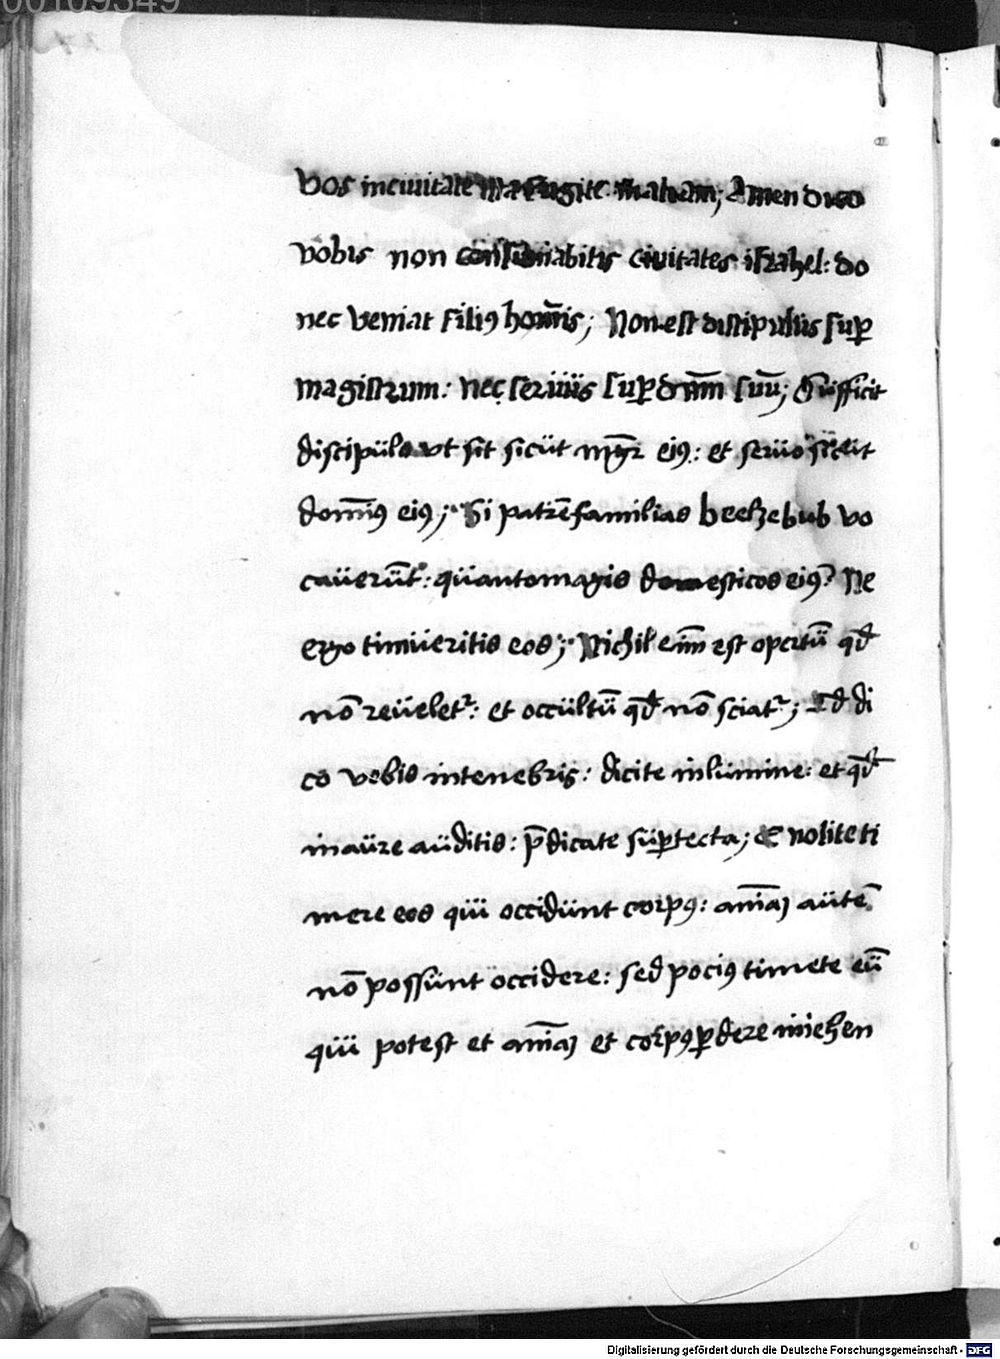 00109349
vos inciuitate ista fugite in aliam; Amen dico
vobis non consumabitis ciuitates israhel: do
nec veniat filiꝯ hoīs; Non est discipulus suꝑ
magistrum: nec seruus suꝑ dn̄m suū; Sufficit
discipülo vt sit sicüt mgr̄ eiꝯ: et serüo sicüt
domīꝯ eiꝯ; Si patrē familias beelzebub vo
cauerūt: qüanto magis domesticos eiꝯ? Ne
ergo timüeritis eos; Nichil eīm est opertū qd̄
nō reüeletr: et occültū qd̄ nō sciatr; Qd̄ di
co vobis intenebris: dicite inlümine: et qd̄
inaüre aüditis: p̄dicate suꝑ tecta; Et nolite ti
mere eos qüi occidünt corpꝯ: aīam aütē
nō possünt occidere: sed pociꝯ timete eū
qüi potest et aīam et corpꝯ ꝑdere in iehen
Digitalisierung gefördert durch die Deutsche Forschungsgemeinschaft - DFG